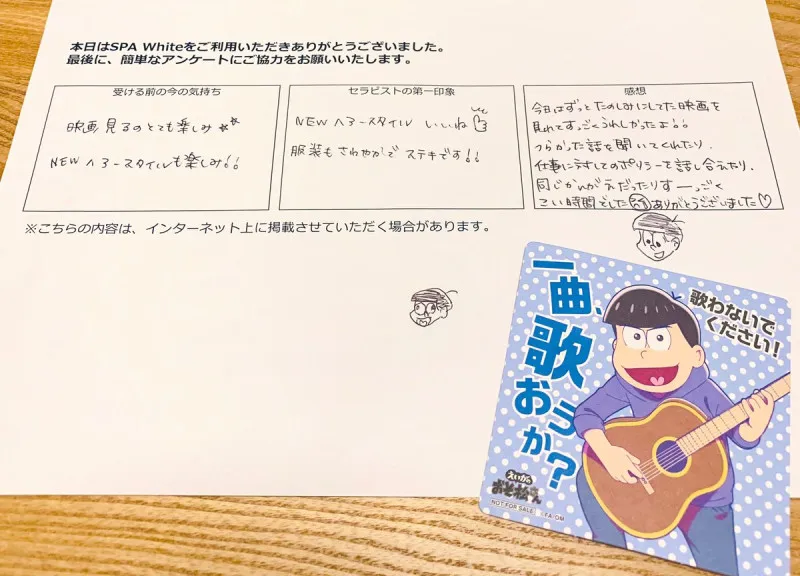 本日はSPA Whiteをご利用いただきありがとうございました。
最後に、簡単なアンケートにご協力をお願いいたします。
受ける前の今の気持ち
映画見るのとても楽しみ
NEWヘアースタイルも楽しみ!!
セラピストの第一印象
NEWヘアースタイル いいね
服装もさわやかで ステキです!!
感想
今日はずっとたのしみにしてた映画を
見れてすっごくうれしかったよ!!
つらかった話を聞いてくれたり、
仕事に対してのポリシーを話し合えたり、
同じかんがえだったりすーっごく
こい時間でした ありがとうございました♡
※こちらの内容は、インターネット上に掲載させていただく場合があります。
一曲、
歌おうか?
歌わないで
ください!
えいがの
おそ松さん
NOT FOR SALE ©FA/OM